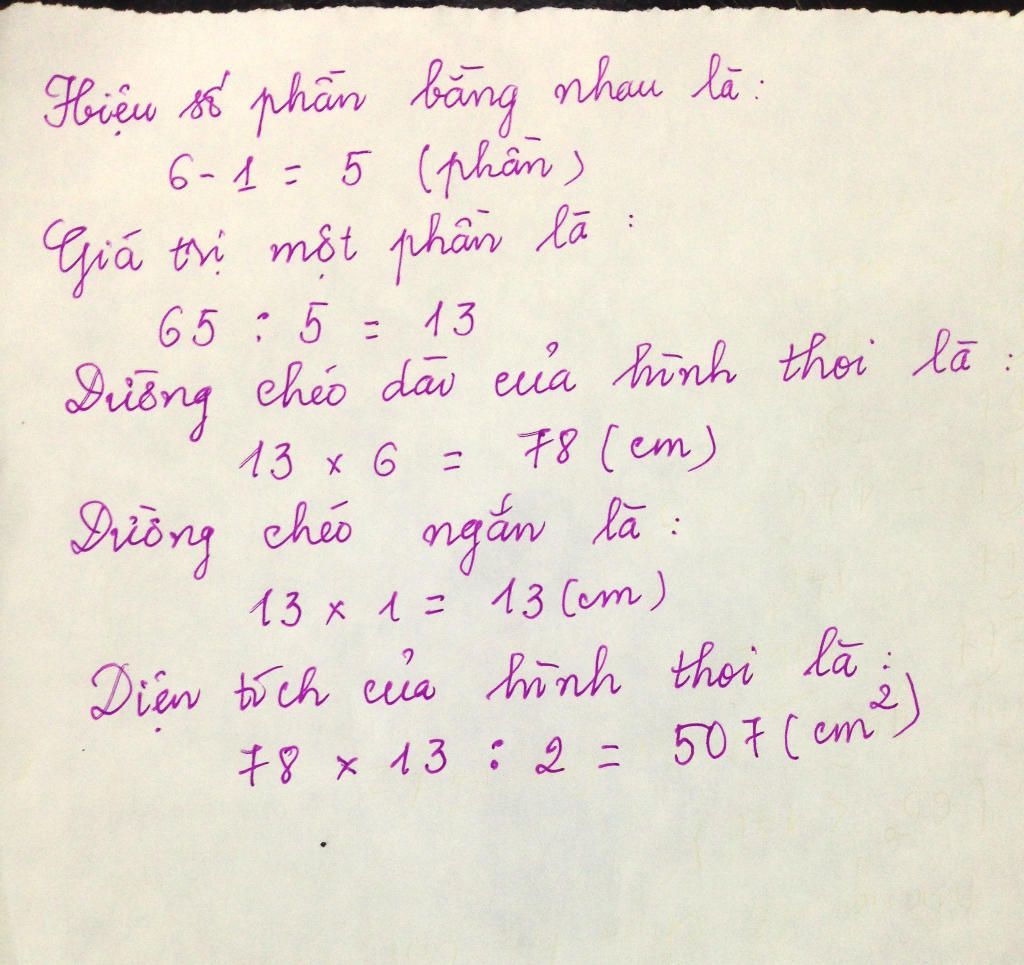 Hiệu số phần bằng nhau là:
6 - 1 = 5 (phần)
Giá trị một phần là :
65 : 5 = 13
Đường chéo dài của hình thoi là :
13 x 6 = 78 (cm)
Đường chéo ngắn là :
13 x 1 = 13 (cm)
Diện tích của hình thoi là :
78 x 13 : 2 = 507 (cm²)